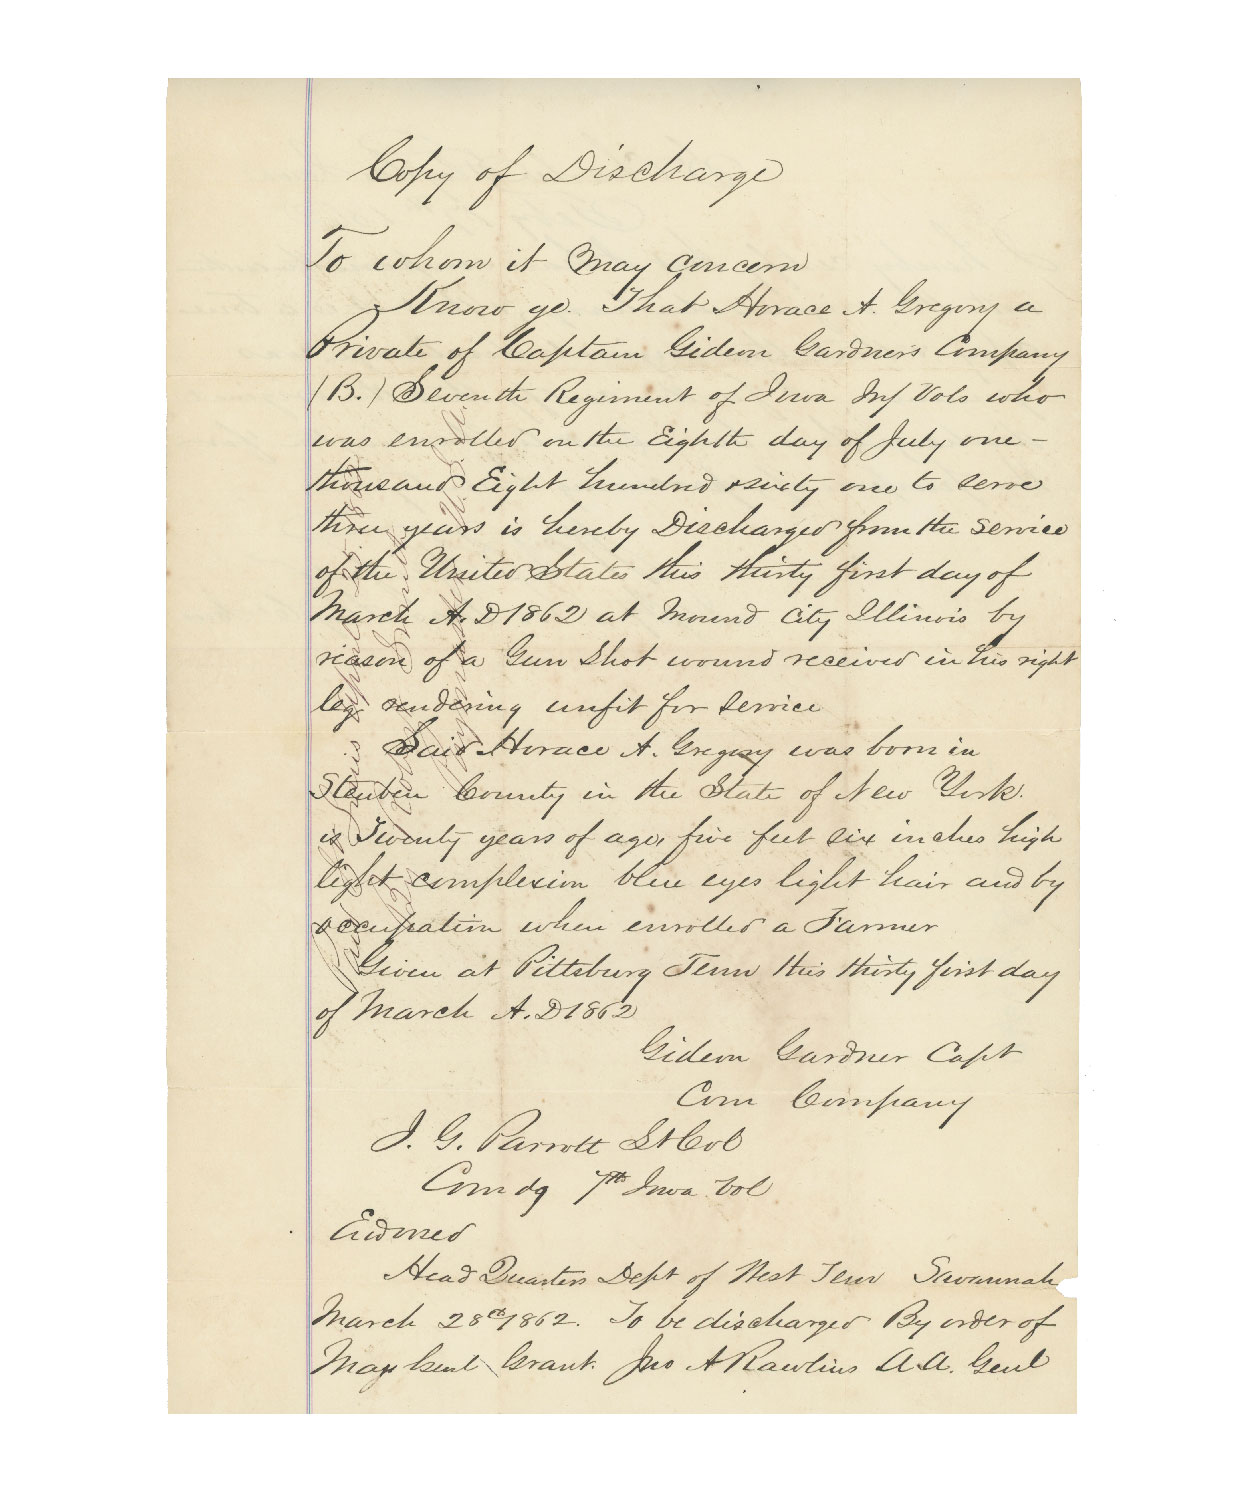 Copy of Discharge
To whom it May concern
Know ye. That Horace A. Gregory a
Private of Captain Gideon Gardners Company
(B.) Seventh Regiment of Iowa Inf Vols who
was enrolled on the Eighth day of July one-
thousand Eight hundred & sixty one to serve
three years is hereby Discharged from the Service
of the United States this thirty first day of
March A.D 1862 at Mound City Illinois by
reason of a Gun Shot wound received in his right
leg rendering unfit for service
Said Horace A. Gregory was born in
Steuben County in the State of New York.
is Twenty years of age, five feet six inches high
light complexion blue eyes light hair and by
occupation when enrolled a Farmer
Given at Pittsburg Tenn this thirty first day
of March A.D 1862
Gideon Gardner Capt
Com Company
J. G. Parrott Lt Col
Comdg 7th Iowa Vol
Endorsed
Head Quarters Dept of West Tenn Savannah
March 28th 1862. To be discharged By order of
Maj Genl Grant. Jno A Rawlins A.A. Genl
Paid